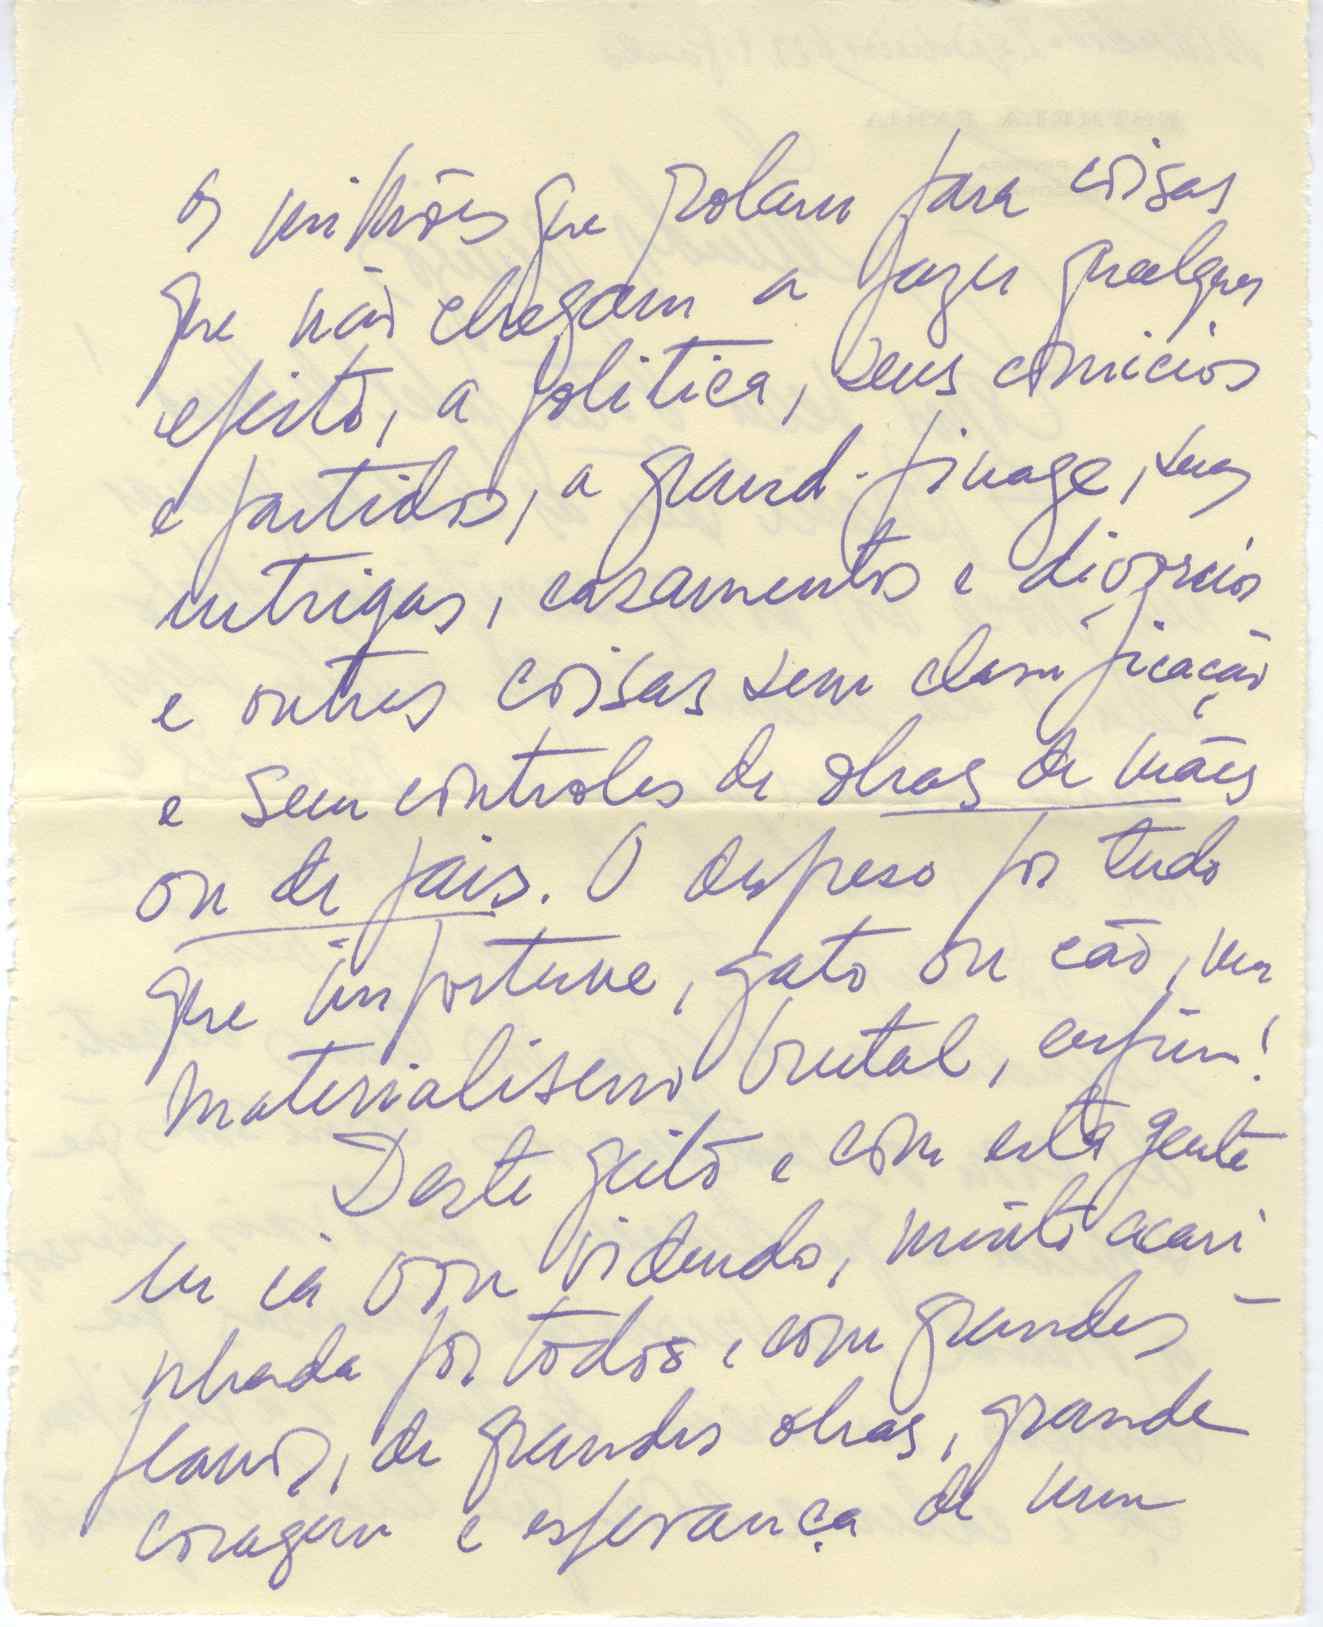 os milhões que rolam para coisas
que não chegam a fazer qualquer
efeito, a politica, seus comicios
e partidos, a grand-finage, suas
intrigas, casamentos e divorcios
e outras coisas sem classificação
e sem controles de obras de mães
ou de pais. O despreso por tudo
que importune, gato ou cão, um
materialismo brutal, enfim!
Deste geito e com esta gente
eu cá vou vivendo, muito acari-
nhada por todos e com grandes
planos, de grandes obras, grande
coragem e esperança de num